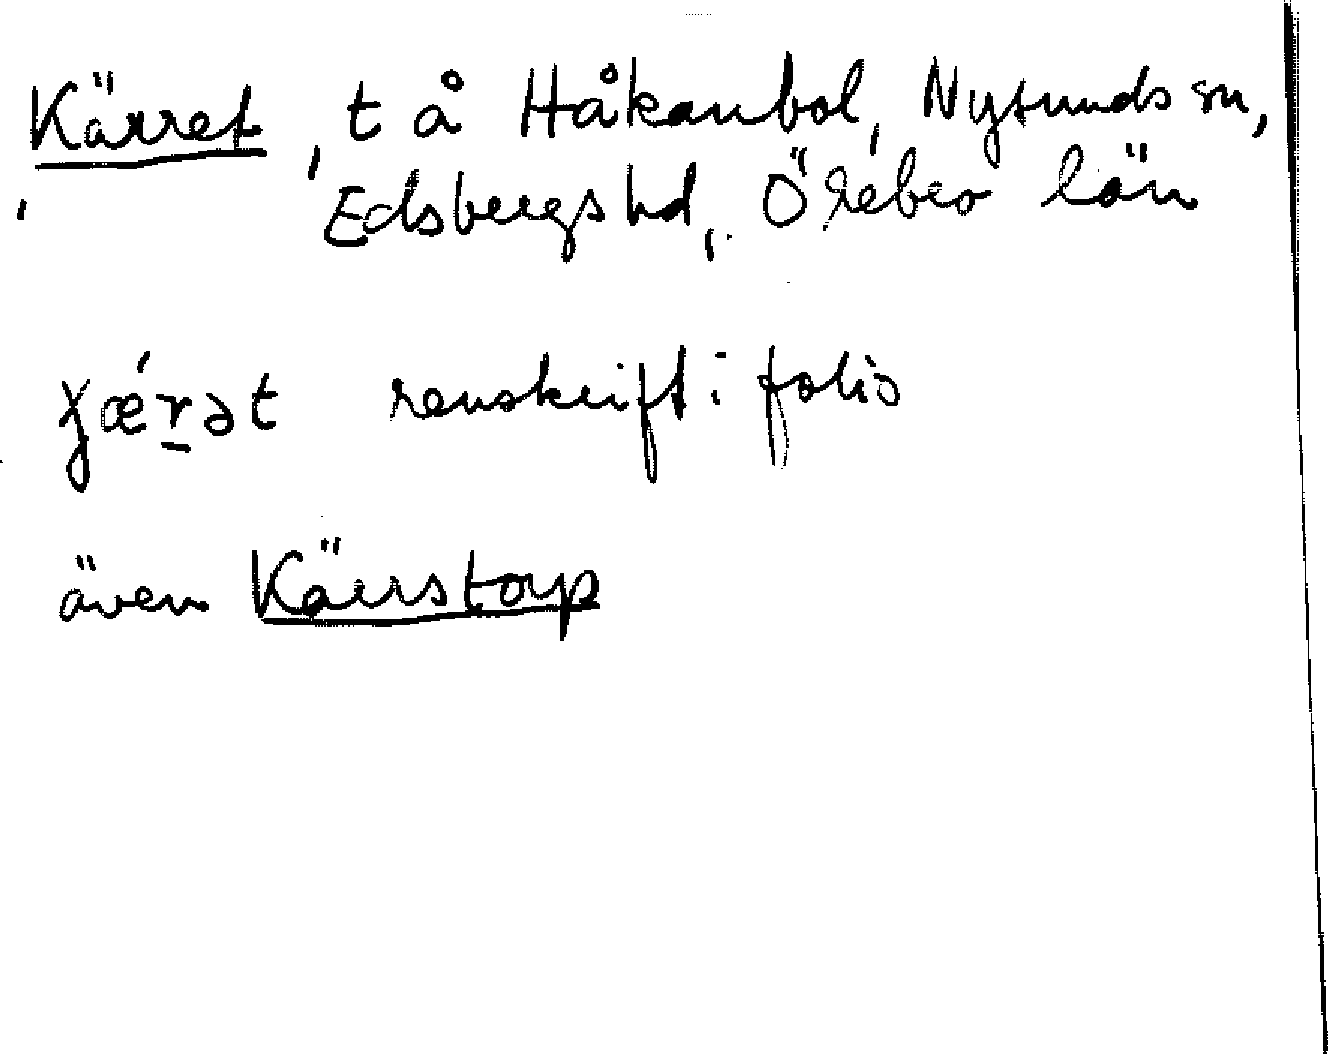 Kärret, t å Håkanbol, Nysunds sn,
Edsbergs hd, Örebro län
renskrift i folio
även Kärrstorp